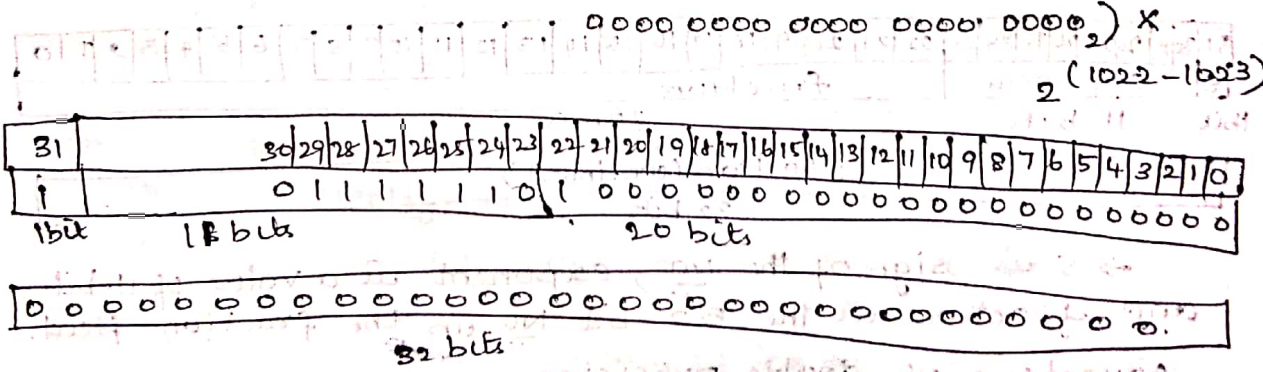 0000 0000 0000 0000 0000₂) ×
2^(1022-1023)
31 30 29 28 27 26 25 24 23 22 21 20 19 18 17 16 15 14 13 12 11 10 9 8 7 6 5 4 3 2 1 0
1 0 1 1 1 1 1 1 0 1 0 0 0 0 0 0 0 0 0 0 0 0 0 0 0 0 0 0 0 0 0 0
1bit 11 bits 20 bits
0 0 0 0 0 0 0 0 0 0 0 0 0 0 0 0 0 0 0 0 0 0 0 0 0 0 0 0 0
32 bits